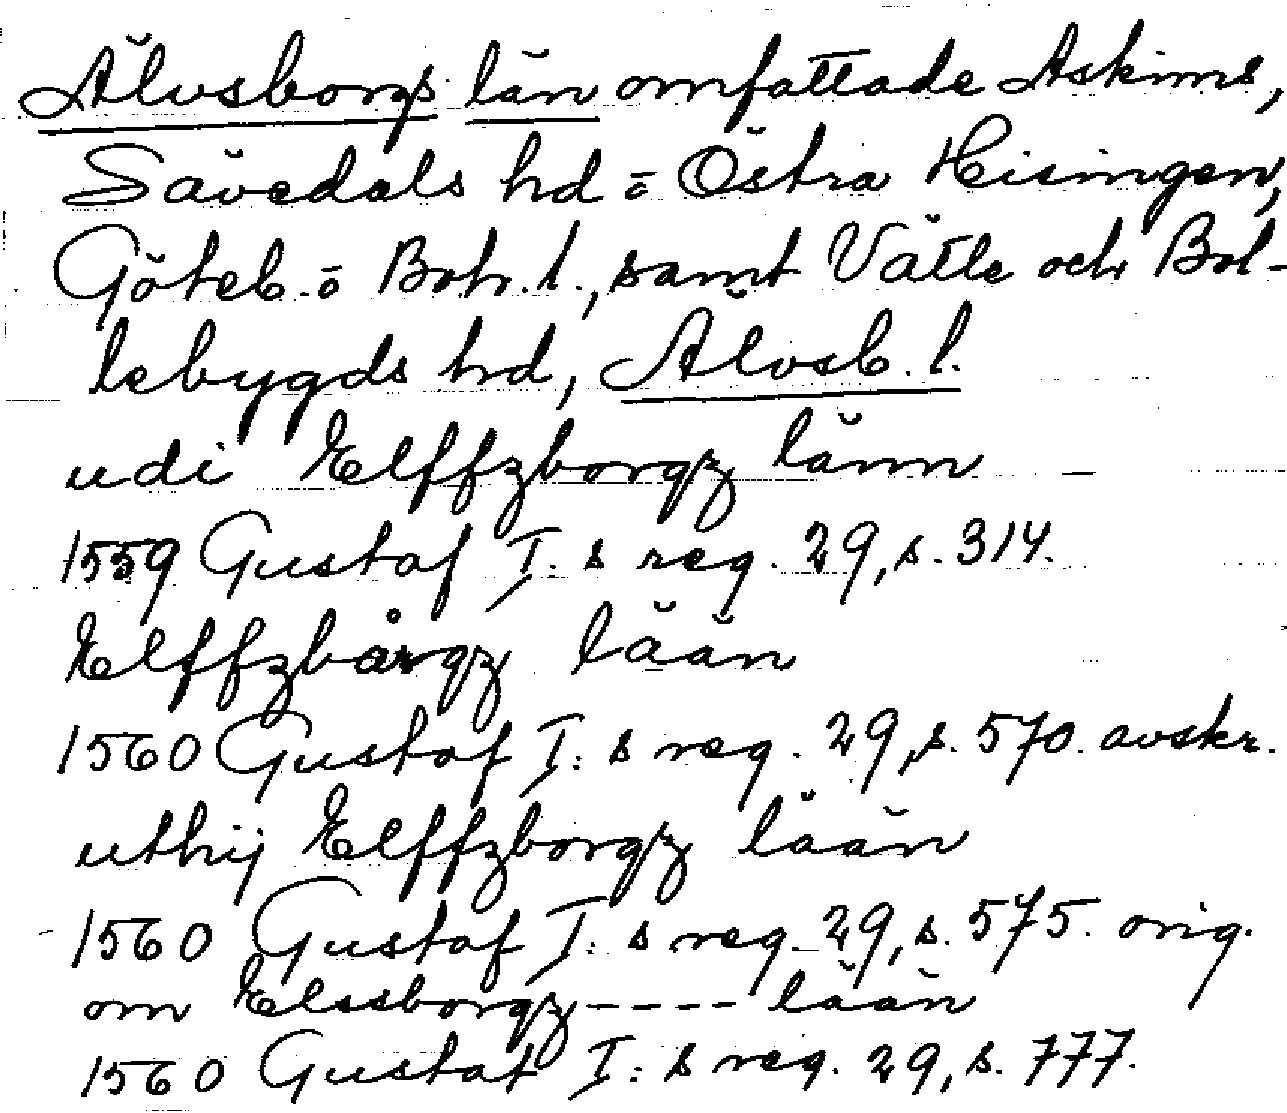 Älvsborgs län omfattade Askims,
Sävedals hd o Östra Hisingen,
Göteb. o Boh. l., samt Vätle och Bol-
lebygds hd, Älvsb. l.
udi Elffzborgz länn —
1559 Gustaf I:s reg. 29, s. 314.
Elffzbårgz lään
1560 Gustaf I:s reg. 29, s. 570. avskr.
uthij Elffzborgz lään
1560 Gustaf I:s reg. 29, s. 575. orig.
om Elssborgz ---- lään
1560 Gustaf I:s reg. 29, s. 777.